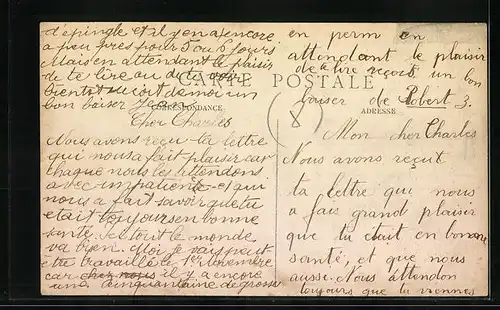 d'épingle et il y en a encore
a peu près pour 5 ou 6 jours
Mais en attendant le plaisir
de te lire ou de te voir
bientôt reçoit de moi un
bon baiser Jean
Cher Charles
Nous avons reçu ta lettre
qui nous a fait plaisir car
chaque nous les attendons
avec impatience et qui
nous a fait savoir que tu
etait toujours en bonne
santé. Ici tout le monde
va bien. Moi je vais peut
être travaillé le 1er novembre
car chez nous il y a encore
une cinquantaine de grosse
CARTE POSTALE
CORRESPONDANCE
ADRESSE
en perm en
attendant le plaisir
de te lire reçois un bon
baiser de Robert 3.
Mon cher Charles
Nous avons reçut
ta lettre qui nous
a fais grand plaisir
que tu était en bonne
santé, et que nous
ausse. Nous attendon
toujours que tu viennes